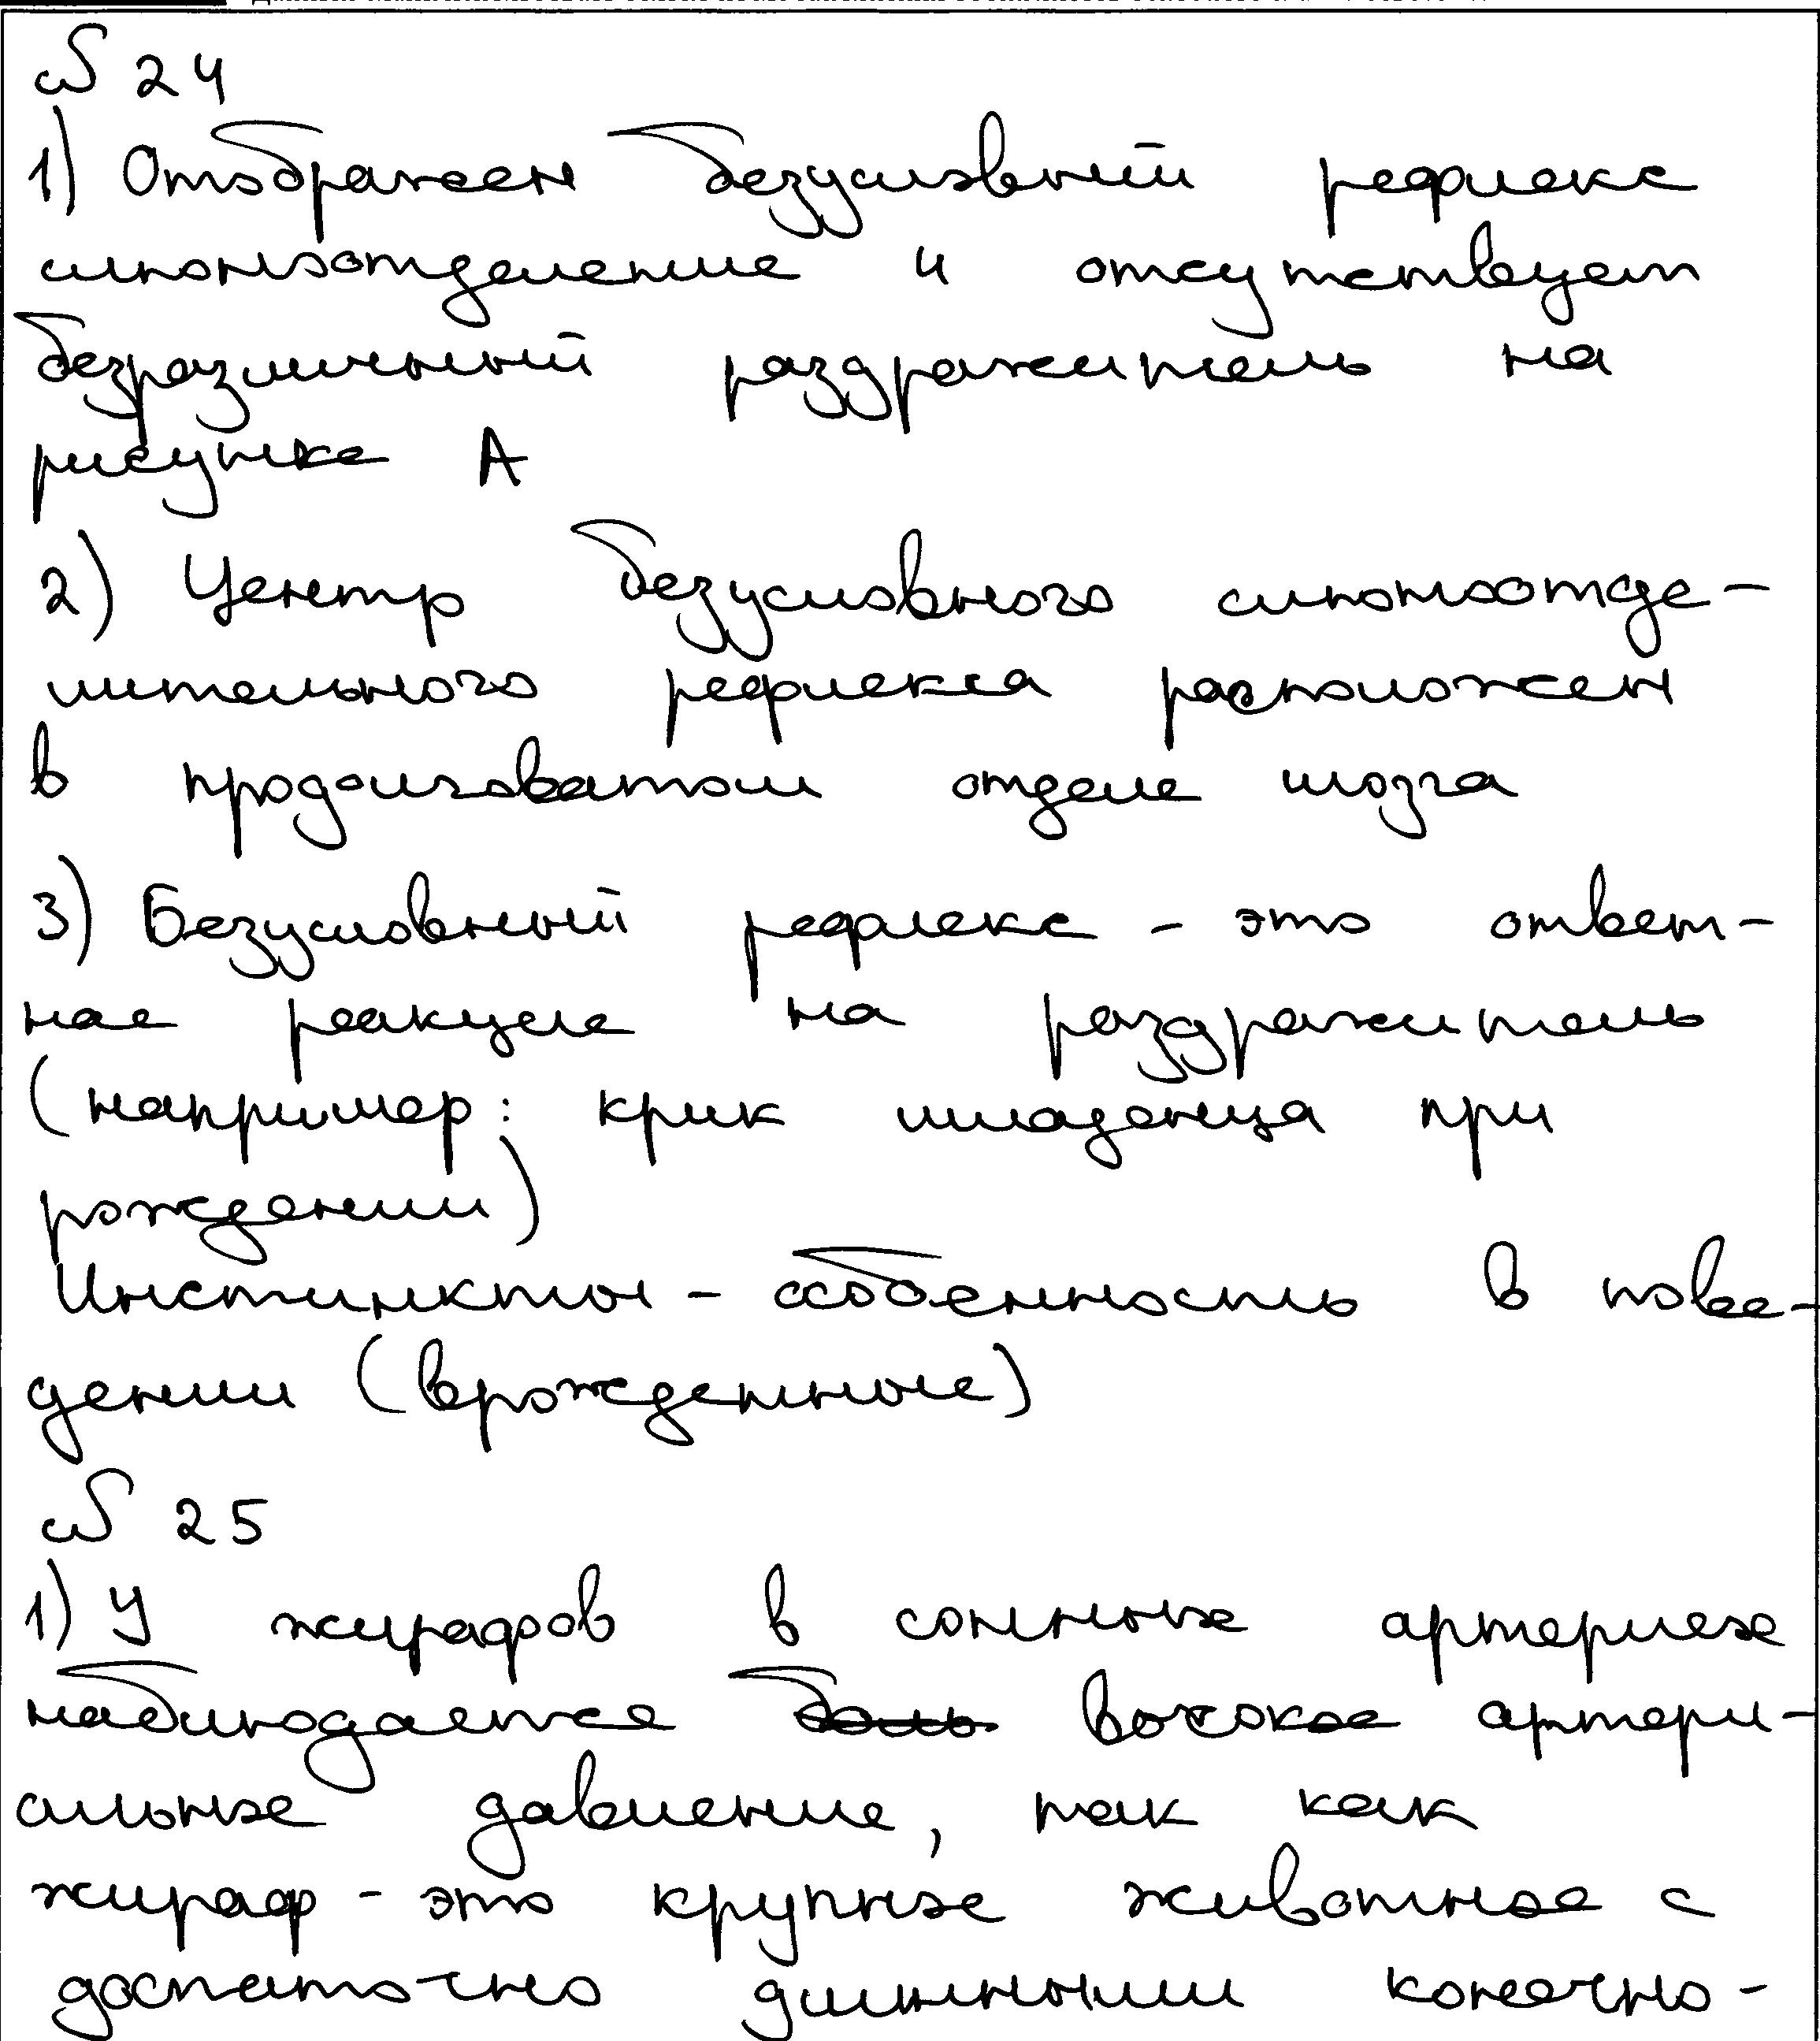 № 24
1) Отображен безусловный рефлекс
слюноотделение и отсутствует
безразличный раздражитель на
рисунке А
2) Центр безусловного слюноотде-
лительного рефлекса расположен
в продолговатом отделе мозга
3) Безусловный рефлекс - это ответ-
ная реакция на раздражитель
(например: крик младенца при
рождении)
Инстинкты - особенность в пове-
дении (врожденные)
№ 25
1) У жирафов в сонных артериях
наблюдается высокое артери-
альное давление, так как
жираф - это крупное животное с
достаточно длинными конечно-